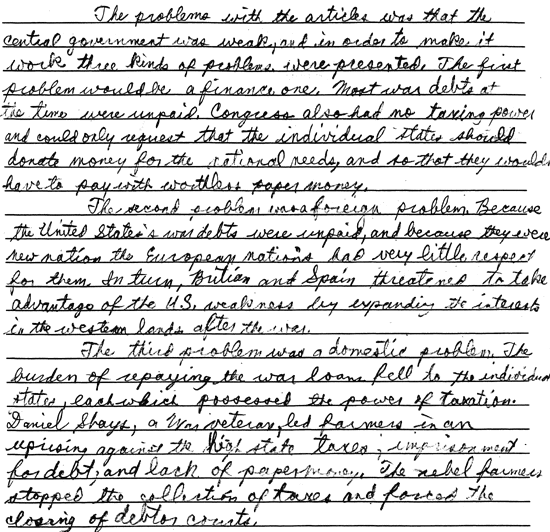 The problems with the articles was that the
central government was weak, and in order to make it
work three kinds of problems were presented. The first
problem would be a finance one. Most war debts at
the time were unpaid. Congress also had no taxing power
and could only request that the individual states should
donate money for the national needs, and so that they would
have to pay with worthless paper money.
The second problem was a foreign problem. Because
the United States's war debts were unpaid, and because they were
new nation the European nations had very little respect
for them. In turn, Britian and Spain threatened to take
advantage of the U.S. weakness by expanding the interests
in the western lands after the war.
The third problem was a domestic problem. The
burden of repaying the war loans fell to the individual
states, each which possessed the power of taxation.
Daniel Shays, a War veteran, led farmers in an
uprising against the high state taxes, imprisonment
for debt, and lack of paper money. The rebel farmers
stopped the collection of taxes and forced the
closing of debtor courts.